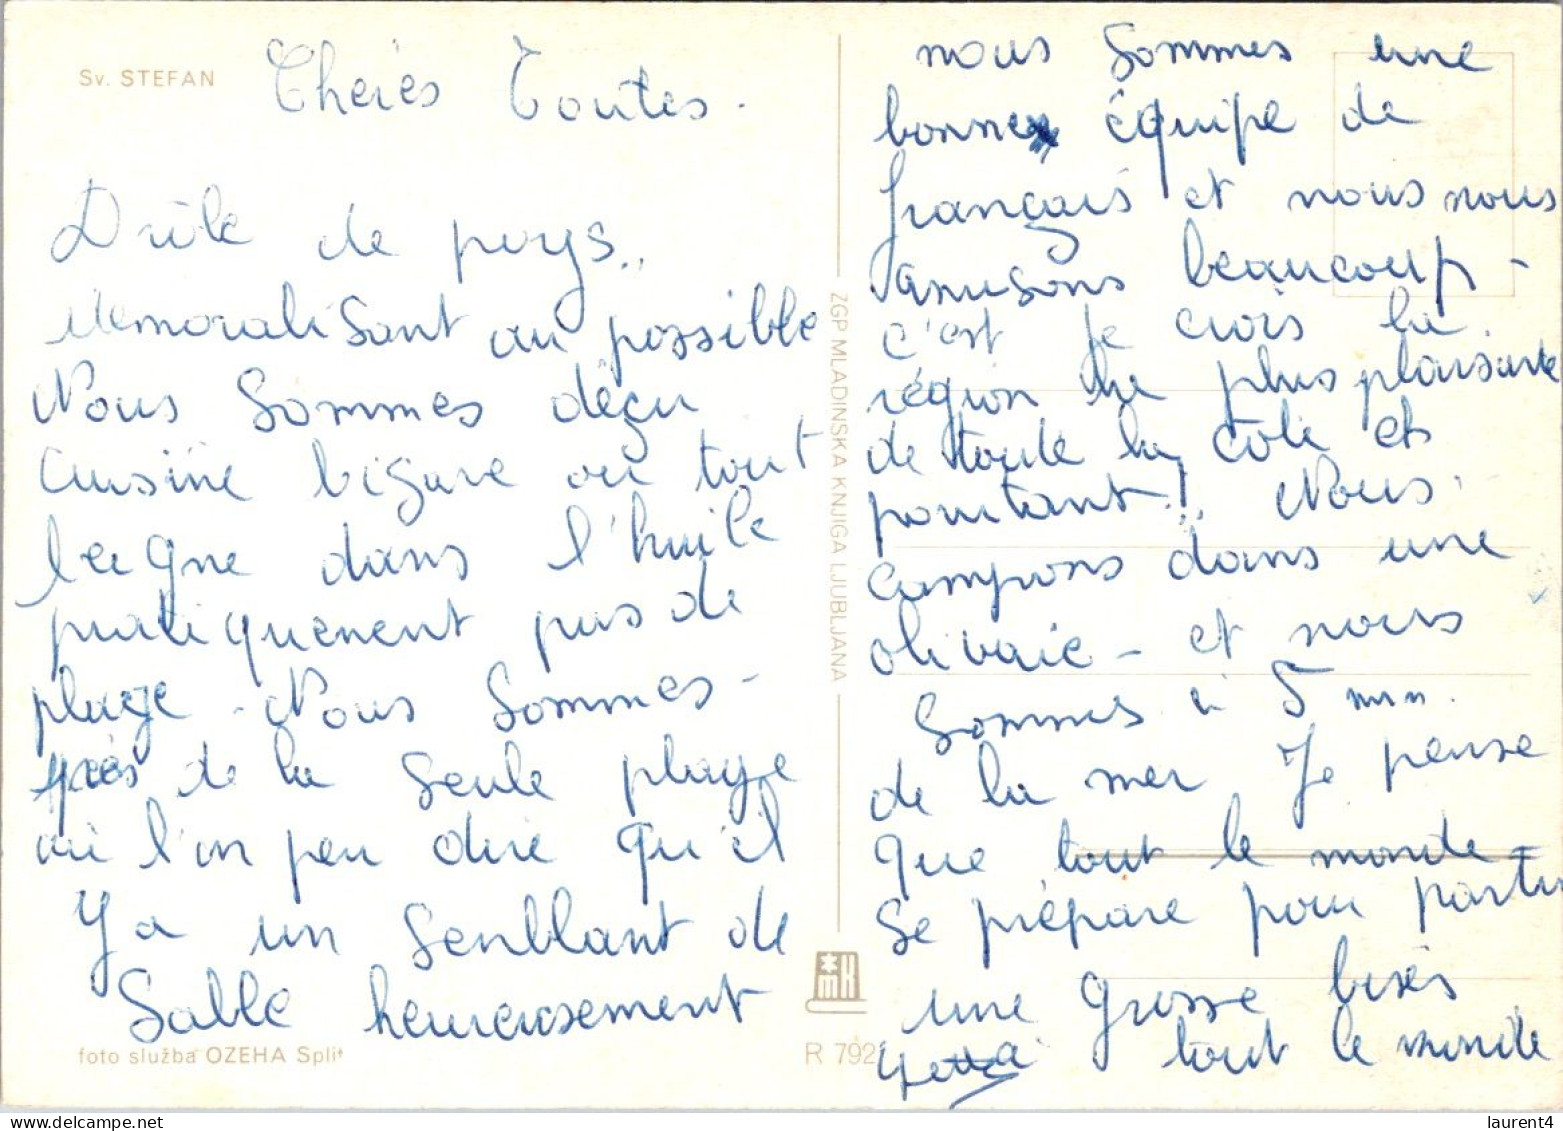 Sv. STEFAN
Cheres Toutes.
Drôle de pays..
démoralisant au possible
Nous sommes déçu
cuisine bigare ou tout
baigne dans l'huile
pratiquement pas de
plage - Nous sommes -
près de la seule plage
où l'on peu dire qu'il
Y a un senblant de
Sable heureusement
foto služba OZEHA Split
ZGP MLADINSKA KNJIGA LJUBLJANA
MK
R 792
nous sommes une
bonne équipe de
français et nous nous
amusons beaucoup -
c'est je crois la
région la plus plaisante
de toute la côte et
pourtant!.. Nous
campons dans une
olivaie - et nous
sommes à 5 min.
de la mer Je pense
que tout le monde
se prépare pour partir
une grosse bises
à tout le monde
laurent4